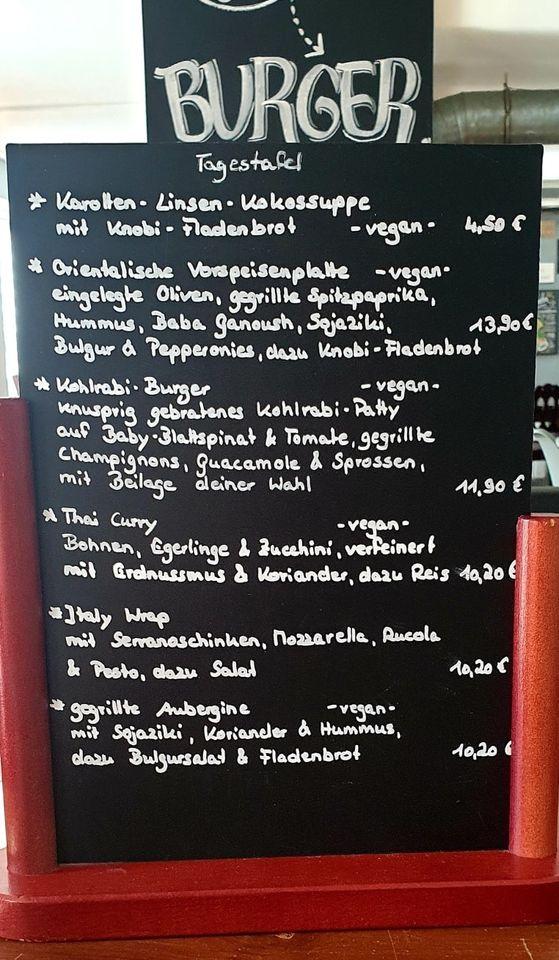 BURGER
Tagestafel
* Karotten-Linsen-Kokossuppe
mit Knobi-Fladenbrot -vegan- 4,50 €
* Orientalische Vorspeisenplatte -vegan-
eingelegte Oliven, gegrillte Spitzpaprika,
Hummus, Baba Ganoush, Sojaziki, 13,90 €
Bulgur & Pepperonies, dazu Knobi-Fladenbrot
* Kohlrabi-Burger -vegan-
knusprig gebratenes Kohlrabi-Patty
auf Baby-Blattspinat & Tomate, gegrillte
Champignons, Guacamole & Sprossen,
mit Beilage deiner Wahl 11,90 €
* Thai Curry -vegan-
Bohnen, Egerlinge & Zucchini, verfeinert
mit Erdnussmus & Koriander, dazu Reis 10,20 €
* Italy Wrap
mit Serranoschinken, Mozzarella, Rucola
& Pesto, dazu Salat 10,20 €
* gegrillte Aubergine -vegan-
mit Sojaziki, Koriander & Hummus,
dazu Bulgursalat & Fladenbrot 10,20 €